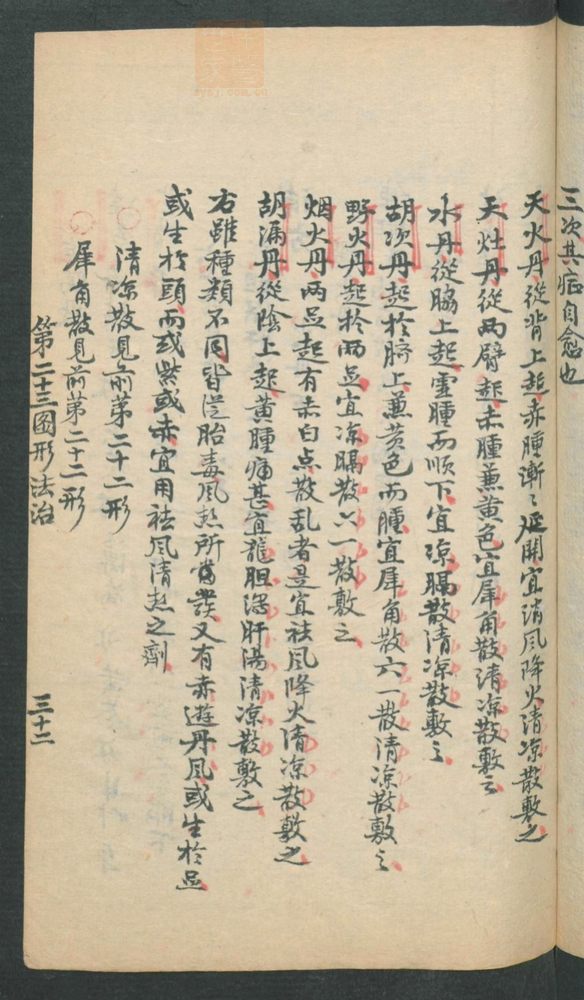 三次其症自愈也
天火丹從背上起赤腫漸〻延開宜清风降火清凉散敷之
天灶丹從两臂起赤腫兼黄色宜犀角散清凉散敷之
水丹從脇上起虚腫而順下宜凉膈散清凉散敷之
胡次丹起於臍上兼黄色而腫宜犀角散六一散清凉散敷之
野火丹起於两足宜凉膈散六一散敷之
烟火丹两足起有赤白点散乱者是宜祛风降火清凉散敷之
胡漏丹從陰上起黄腫痛甚宜龍胆泻肝湯清凉散敷之
右雖種類不同皆従胎毒风热所發又有赤遊丹风或生於足
或生於頭而或紫或赤宜用祛风清热之劑
清凉散見前第二十二形
犀角散見前第二十二形
第二十三圖形法治
三十二